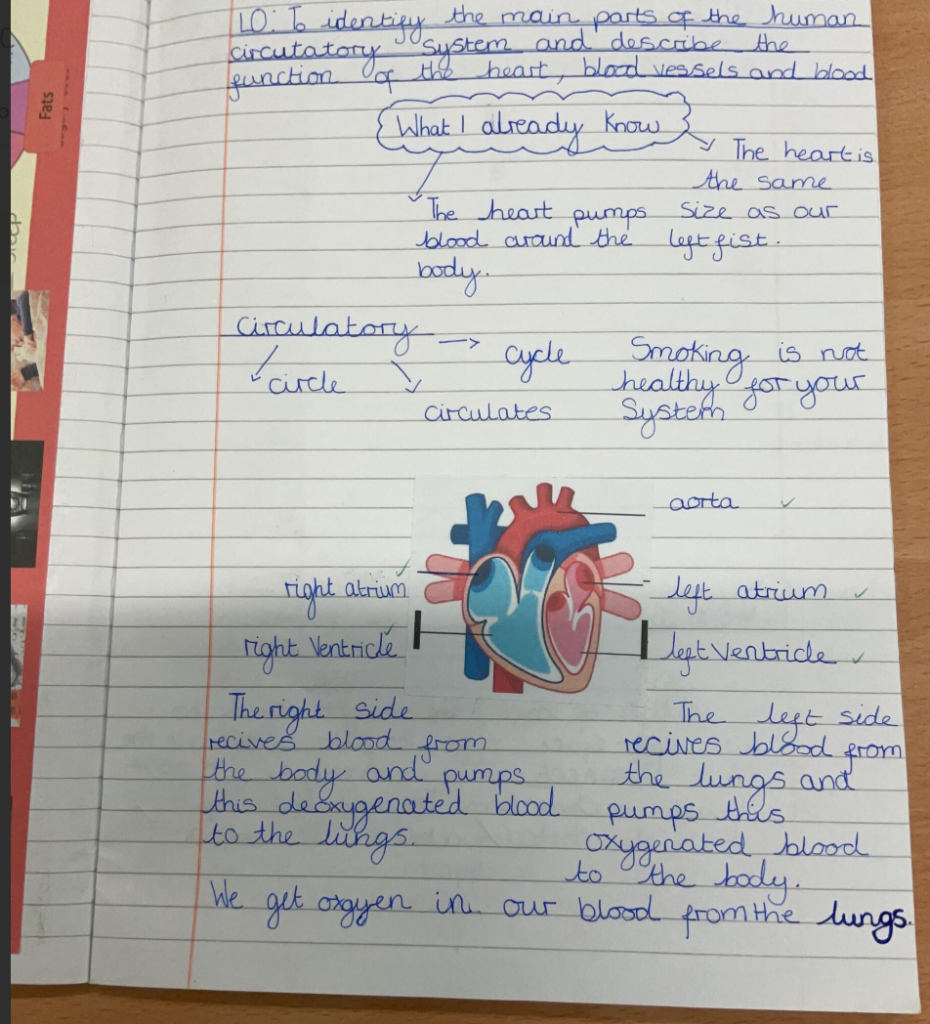 Fats
LO: To identify the main parts of the human
circutatory system and describe the
function of the heart, blood vessels and blood
What I already Know
The heart is
the same
size as our
left fist.
The heart pumps
blood around the
body.
circulatory
circle
cycle
circulates
Smoking is not
healthy for your
System
aorta
right atrium
left atrium
right Ventricle
left Ventricle
The right side
recives blood from
the body and pumps
this deoxygenated blood
to the lungs.
The left side
recives blood from
the lungs and
pumps this
oxygenated blood
to the body.
We get oxgyen in our blood from the lungs.